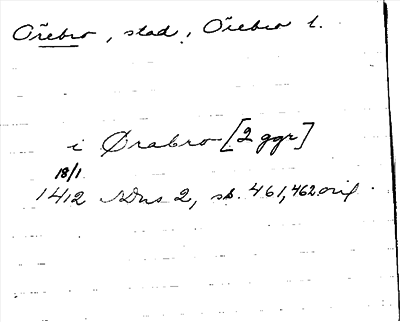 Örebro, stad, Örebro l.
i Ørabro [2 ggr]
18/1
1412 SDns 2, sh. 461, 462 orig.